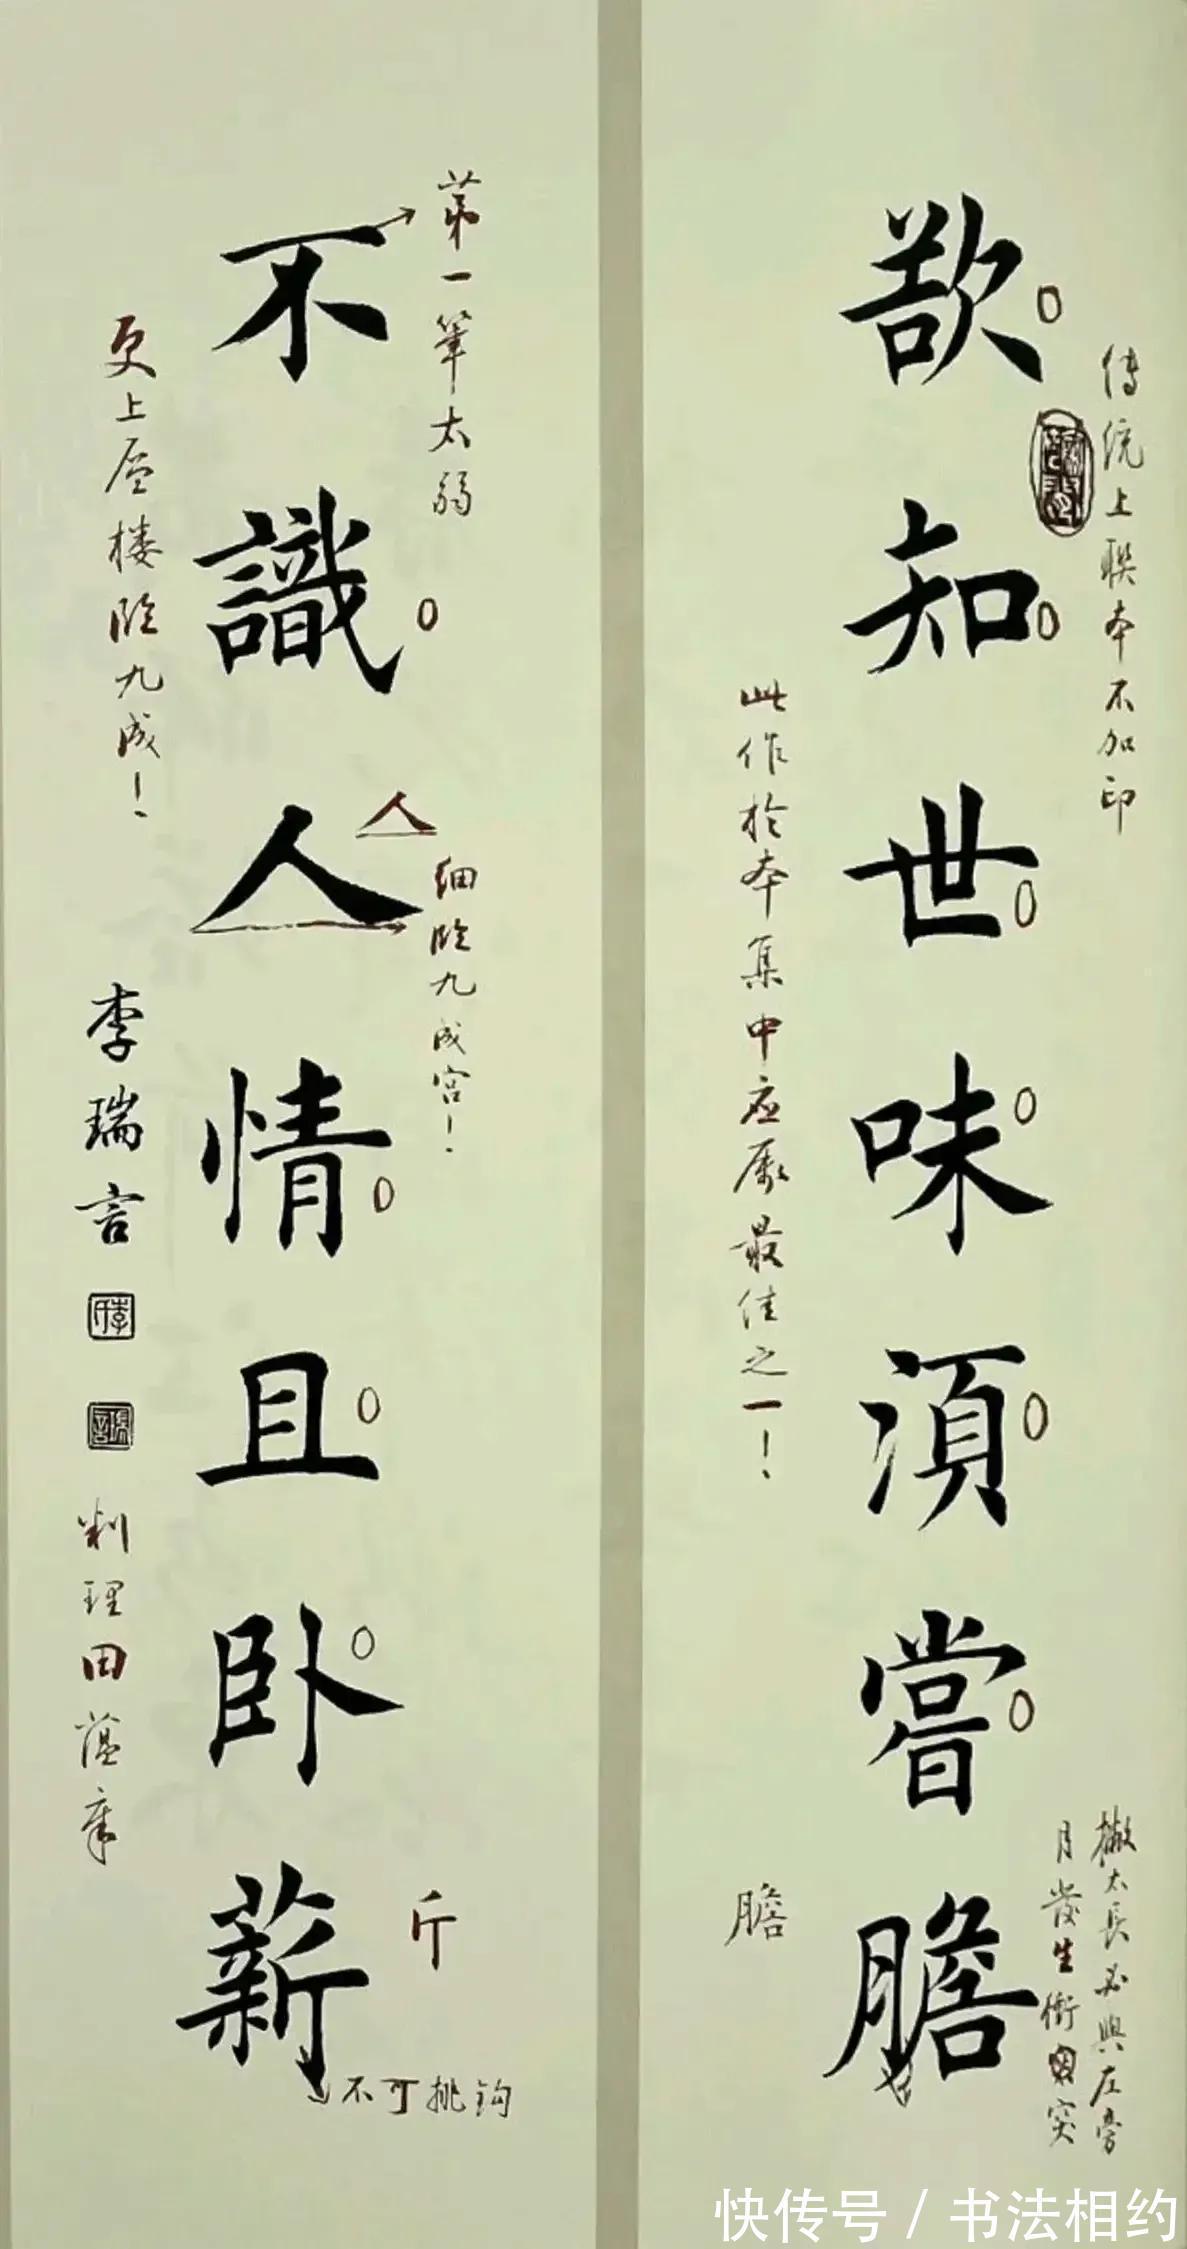 欲知世味須嘗膽
傳統上聯本不加印
此作於本集中应屬最佳之一！
撇太長必與左旁
月发生衝突
膽
不識人情且卧薪
第一筆太弱
人
细临九成宫！
更上层楼临九成！
李瑞言
斤
不可挑钩
快传号/书法相约